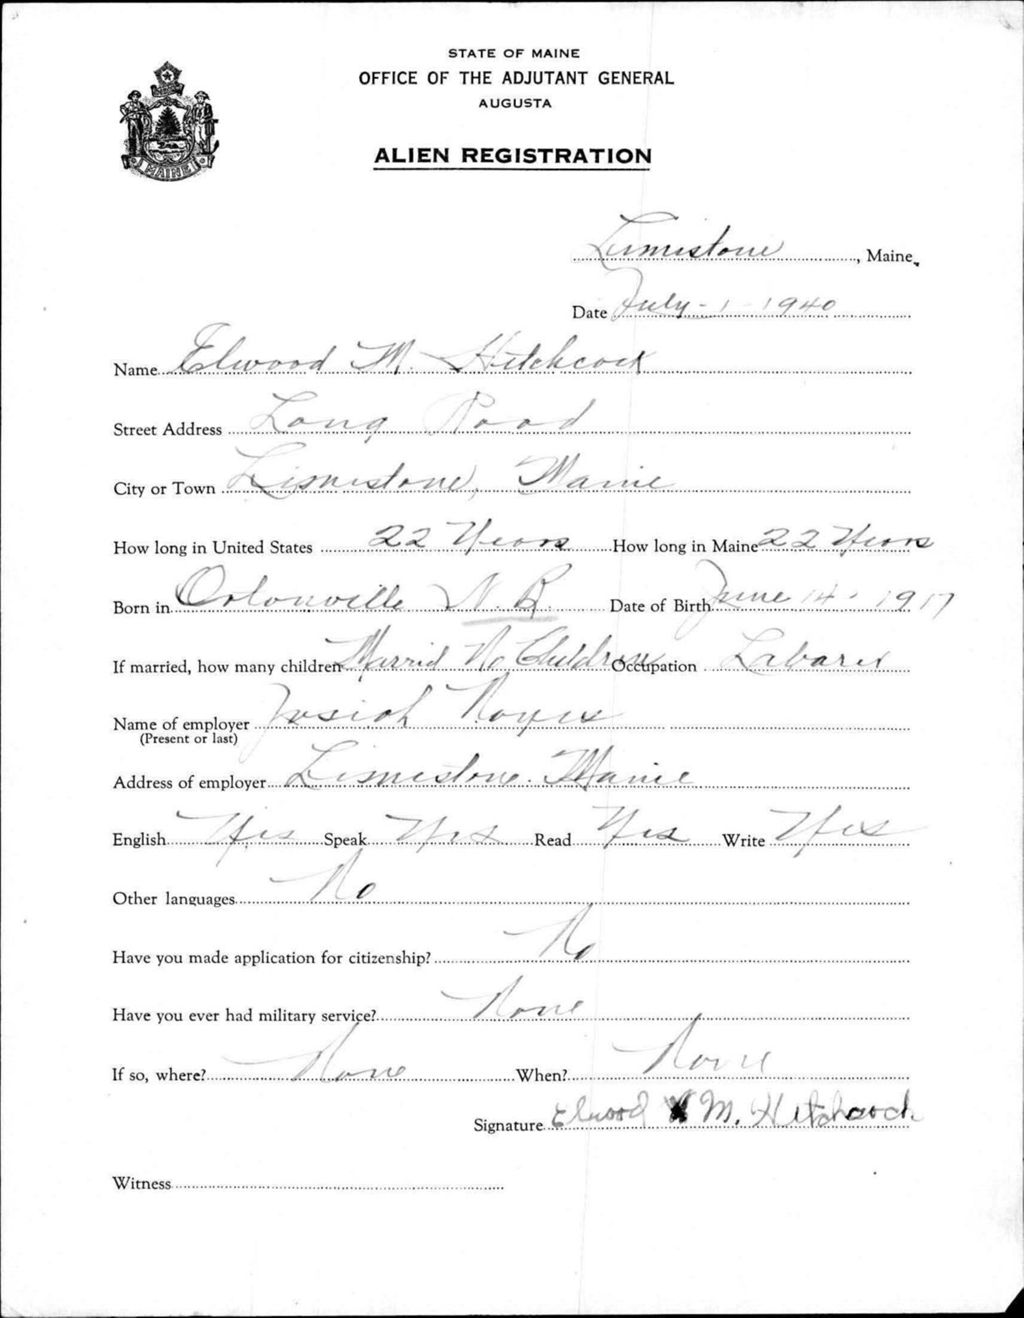 STATE OF MAINE
OFFICE OF THE ADJUTANT GENERAL
AUGUSTA
MAINE
ALIEN REGISTRATION
Limistone, Maine.
Date July - 1 - 1940
Name Elwood M. Hitchcock
Street Address Long Road
City or Town Limistone, Maine
How long in United States 22 Years How long in Maine 22 Years
Born in N. B. Date of Birth June 14 - 1917
If married, how many children Marrid No Children Occupation Labarer
Name of employer Josiah Noyes
(Present or last)
Address of employer Limestone. Maine
English Yes Speak Yes Read Yes Write Yes
Other languages No
Have you made application for citizenship? No
Have you ever had military service? None
If so, where? None When? None
Signature Elwood M. Hitchcock
Witness